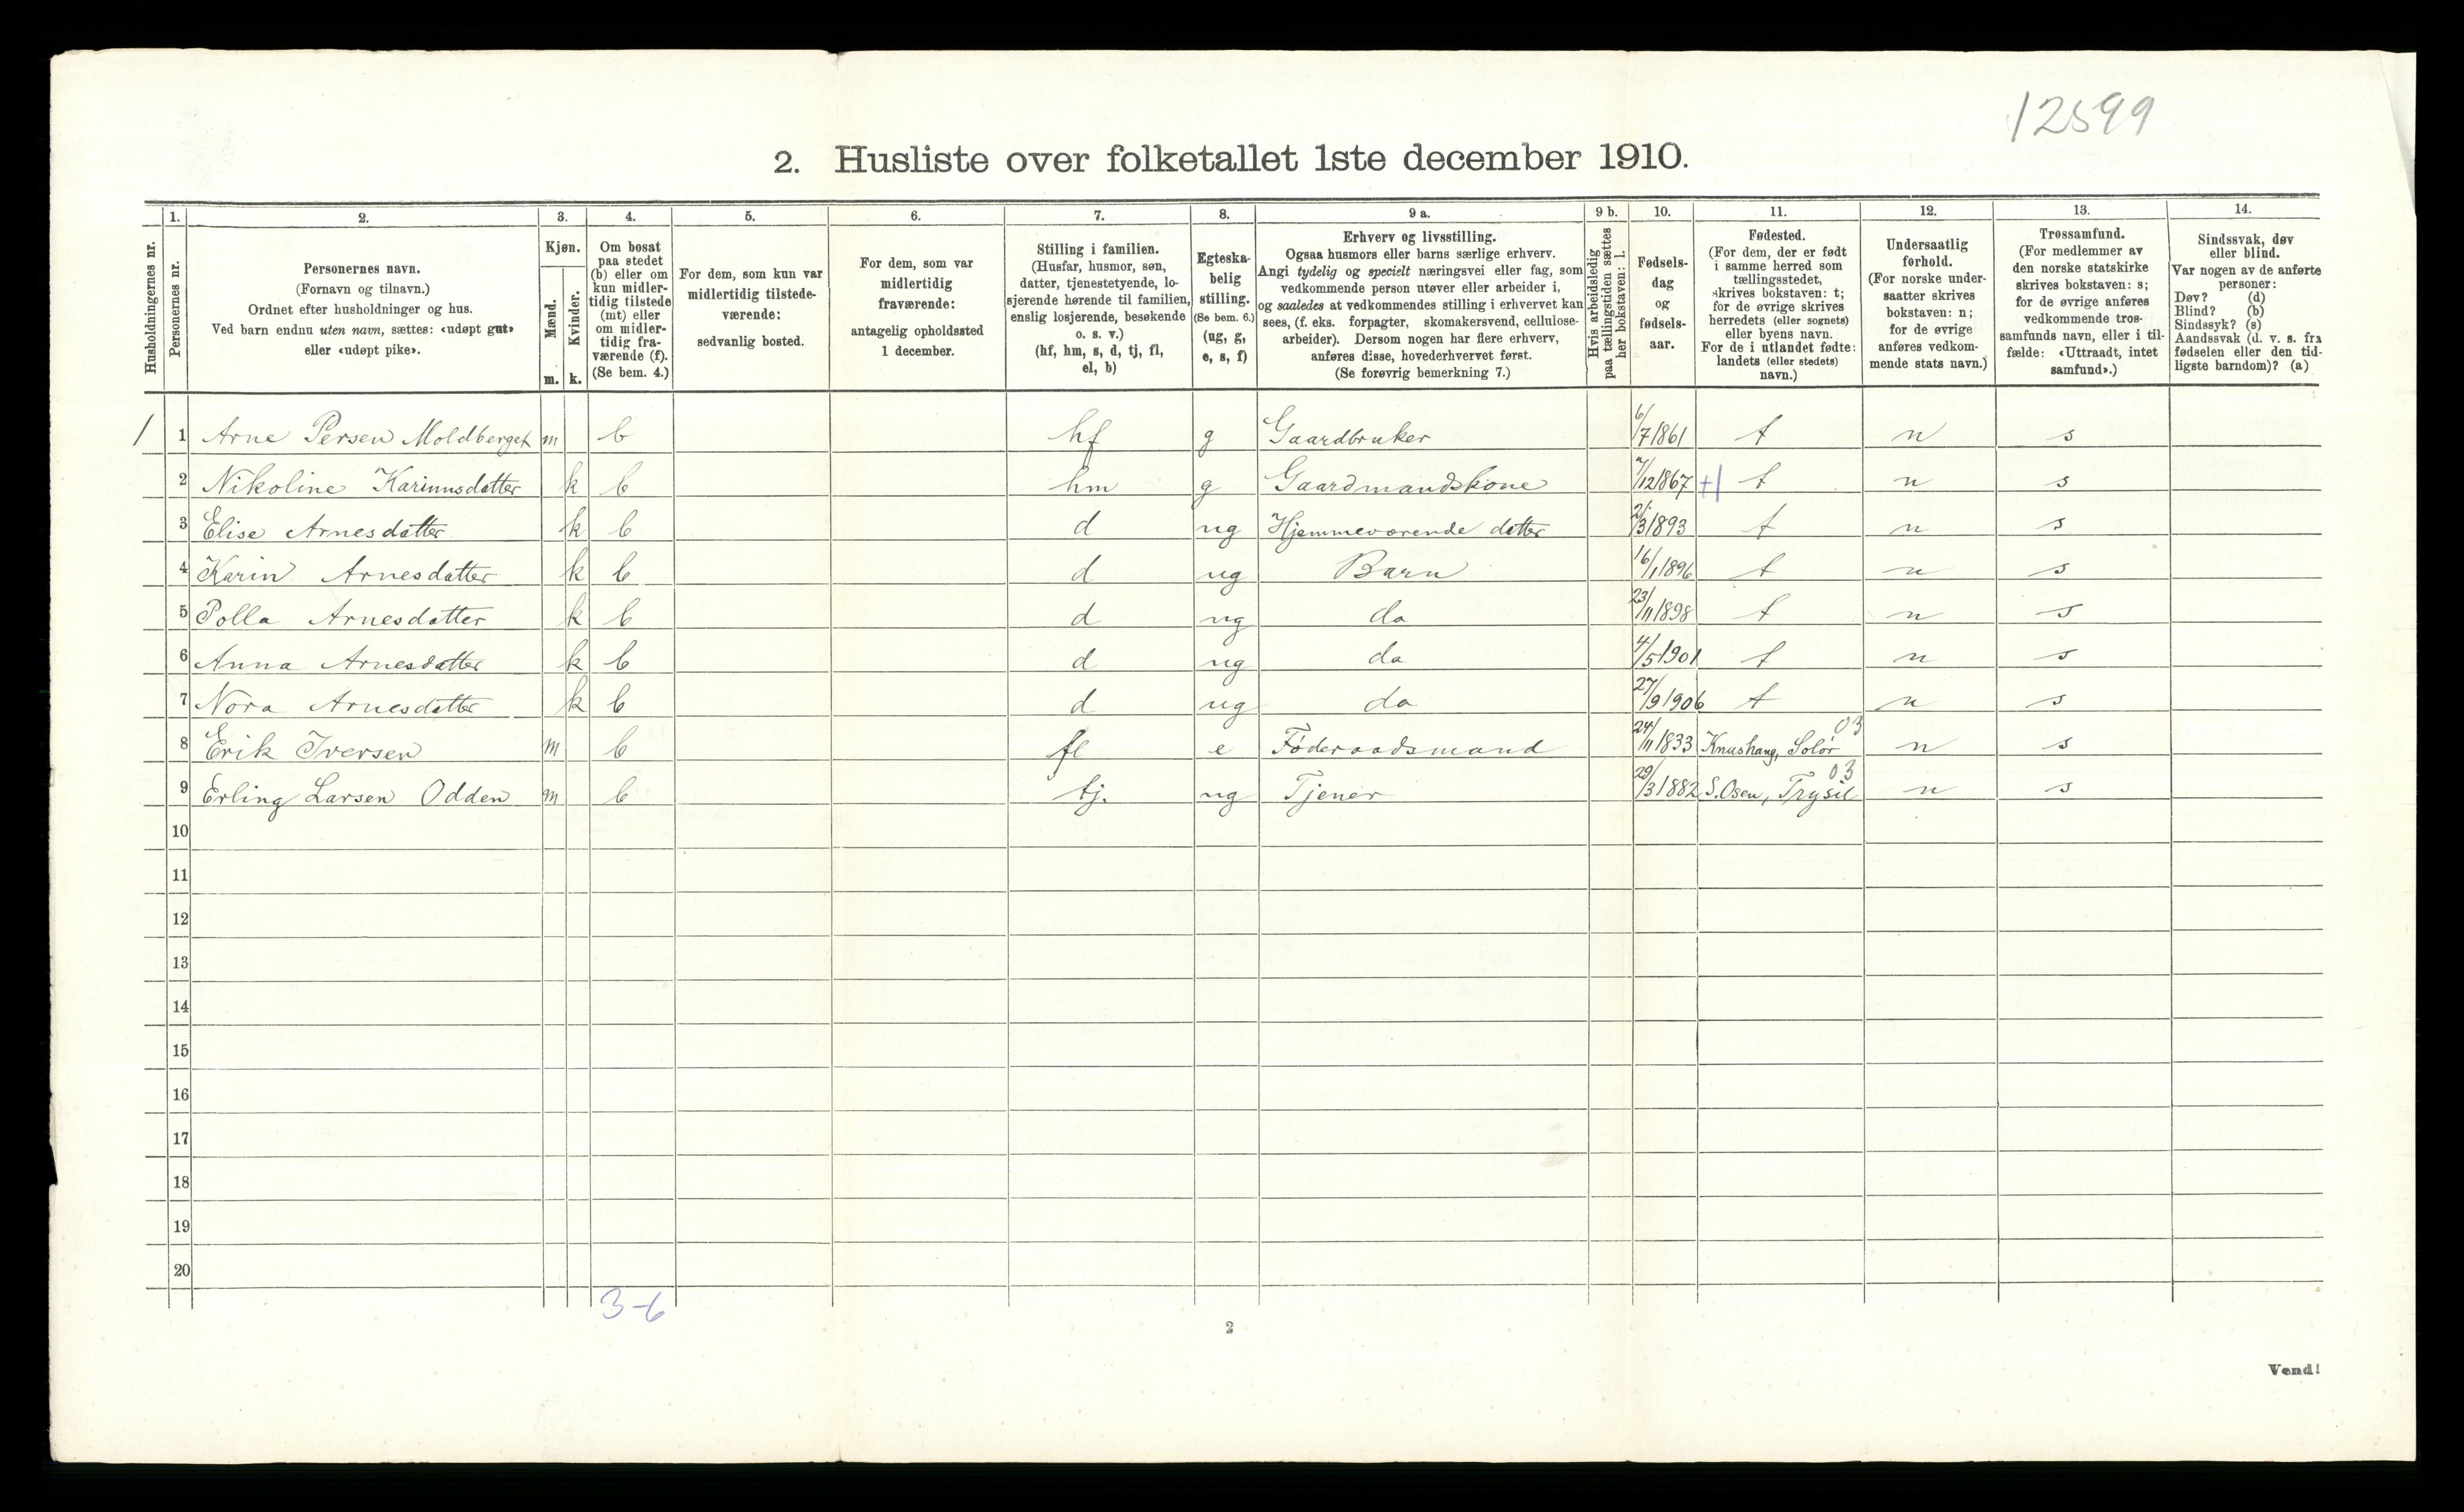 12599
2. Husliste over folketallet 1ste december 1910.
Husholdningernes nr.
1. Personernes nr.
2. Personernes navn.
(Fornavn og tilnavn.)
Ordnet efter husholdninger og hus.
Ved barn endnu uten navn, sættes: «udøpt gut»
eller «udøpt pike».
3. Kjøn.
Mænd. m.
Kvinder. k.
4. Om bosat
paa stedet
(b) eller om
kun midler-
tidig tilstede
(mt) eller
om midler-
tidig fra-
værende (f).
(Se bem. 4.)
5. For dem, som kun var
midlertidig tilstede-
værende:
sedvanlig bosted.
6. For dem, som var
midlertidig
fraværende:
antagelig opholdssted
1 december.
7. Stilling i familien.
(Husfar, husmor, søn,
datter, tjenestetyende, lo-
sjerende hørende til familien,
enslig losjerende, besøkende
o. s. v.)
(hf, hm, s, d, tj, fl,
el, b)
8. Egteska-
belig
stilling.
(Se bem. 6.)
(ug, g,
e, s, f)
9 a. Erhverv og livsstilling.
Ogsaa husmors eller barns særlige erhverv.
Angi tydelig og specielt næringsvei eller fag, som
vedkommende person utøver eller arbeider i,
og saaledes at vedkommendes stilling i erhvervet kan
sees, (f. eks. forpagter, skomakersvend, cellulose-
arbeider). Dersom nogen har flere erhverv,
anføres disse, hovederhvervet først.
(Se forøvrig bemerkning 7.)
9 b. Hvis arbeidsledig
paa tællingstiden sættes
her bokstaven: l.
10. Fødsels-
dag
og
fødsels-
aar.
11. Fødested.
(For dem, der er født
i samme herred som
tællingsstedet,
skrives bokstaven: t;
for de øvrige skrives
herredets (eller sognets)
eller byens navn.
For de i utlandet fødte:
landets (eller stedets)
navn.)
12. Undersaatlig
forhold.
(For norske under-
saatter skrives
bokstaven: n;
for de øvrige
anføres vedkom-
mende stats navn.)
13. Trossamfund.
(For medlemmer av
den norske statskirke
skrives bokstaven: s;
for de øvrige anføres
vedkommende tros-
samfunds navn, eller i til-
fælde: «Uttraadt, intet
samfund».)
14. Sindssvak, døv
eller blind.
Var nogen av de anførte
personer:
Døv? (d)
Blind? (b)
Sindssyk? (s)
Aandssvak (d. v. s. fra
fødselen eller den tid-
ligste barndom)? (a)
1 1 Arne Persen Moldberget m b hf g Gaardbruker 6/7 1861 t n s
2 Nikoline Karinusdatter k b hm g Gaardmandskone 7/12 1867 +1 t n s
3 Elise Arnesdatter k b d ug Hjemmeværende datter 21/3 1893 t n s
4 Karin Arnesdatter k b d ug Barn 16/1 1896 t n s
5 Polla Arnesdatter k b d ug do 23/11 1898 t n s
6 Anna Arnesdatter k b d ug do 4/5 1901 t n s
7 Nora Arnesdatter k b d ug do 27/9 1906 t n s
8 Erik Iversen m b fl e Føderaadsmand 24/11 1833 Knushaug, Solør 03 n s
9 Erling Larsen Odden m b tj. ug Tjener 29/3 1882 S. Osen, Trysil 03 n s
10
11
12
13
14
15
16
17
18
19
20
3-6
2
Vend!